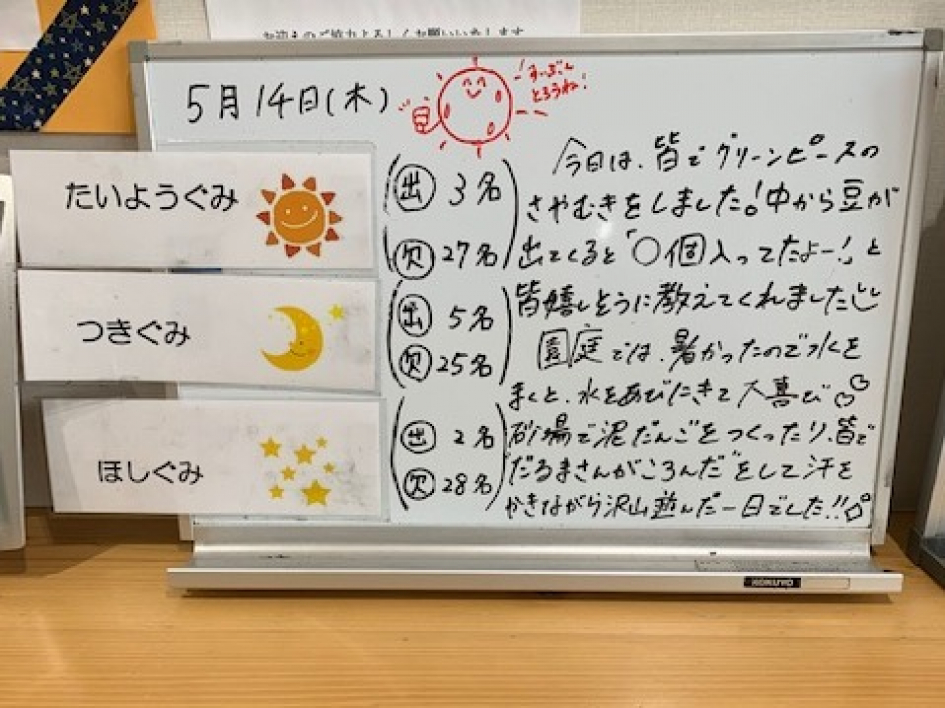 お迎えのご協力よろしくお願いいたします
5月14日(木)
すいぶん
とろうね!
たいようぐみ
出 3名
欠 27名
つきぐみ
出 5名
欠 25名
ほしぐみ
出 2名
欠 28名
今日は、皆でグリーンピースの
さやむきをしました!中から豆が
出てくると「○個入ってたよー!」と
皆嬉しそうに教えてくれました
園庭では、暑かったので水を
まくと、水をあびにきて大喜び
砂場で泥だんごをつくったり、皆で
"だるまさんがころんだ"をして汗を
かきながら沢山遊んだ一日でした!!
KOKUYO